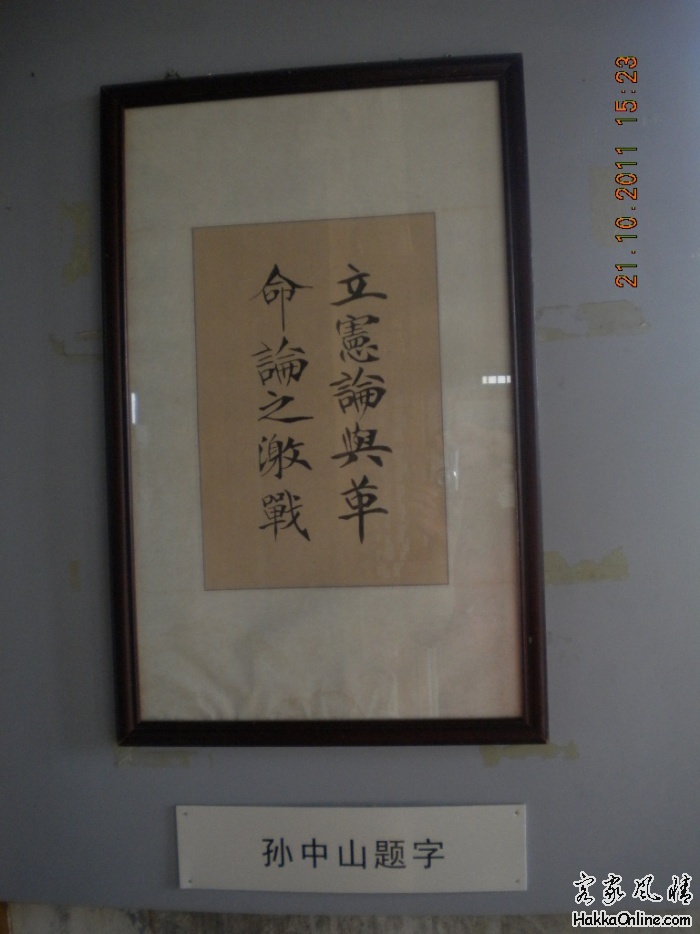 立憲論與革
命論之激戰
孙中山题字
21.10.2011 15:23
客家风情
HakkaOnline.com